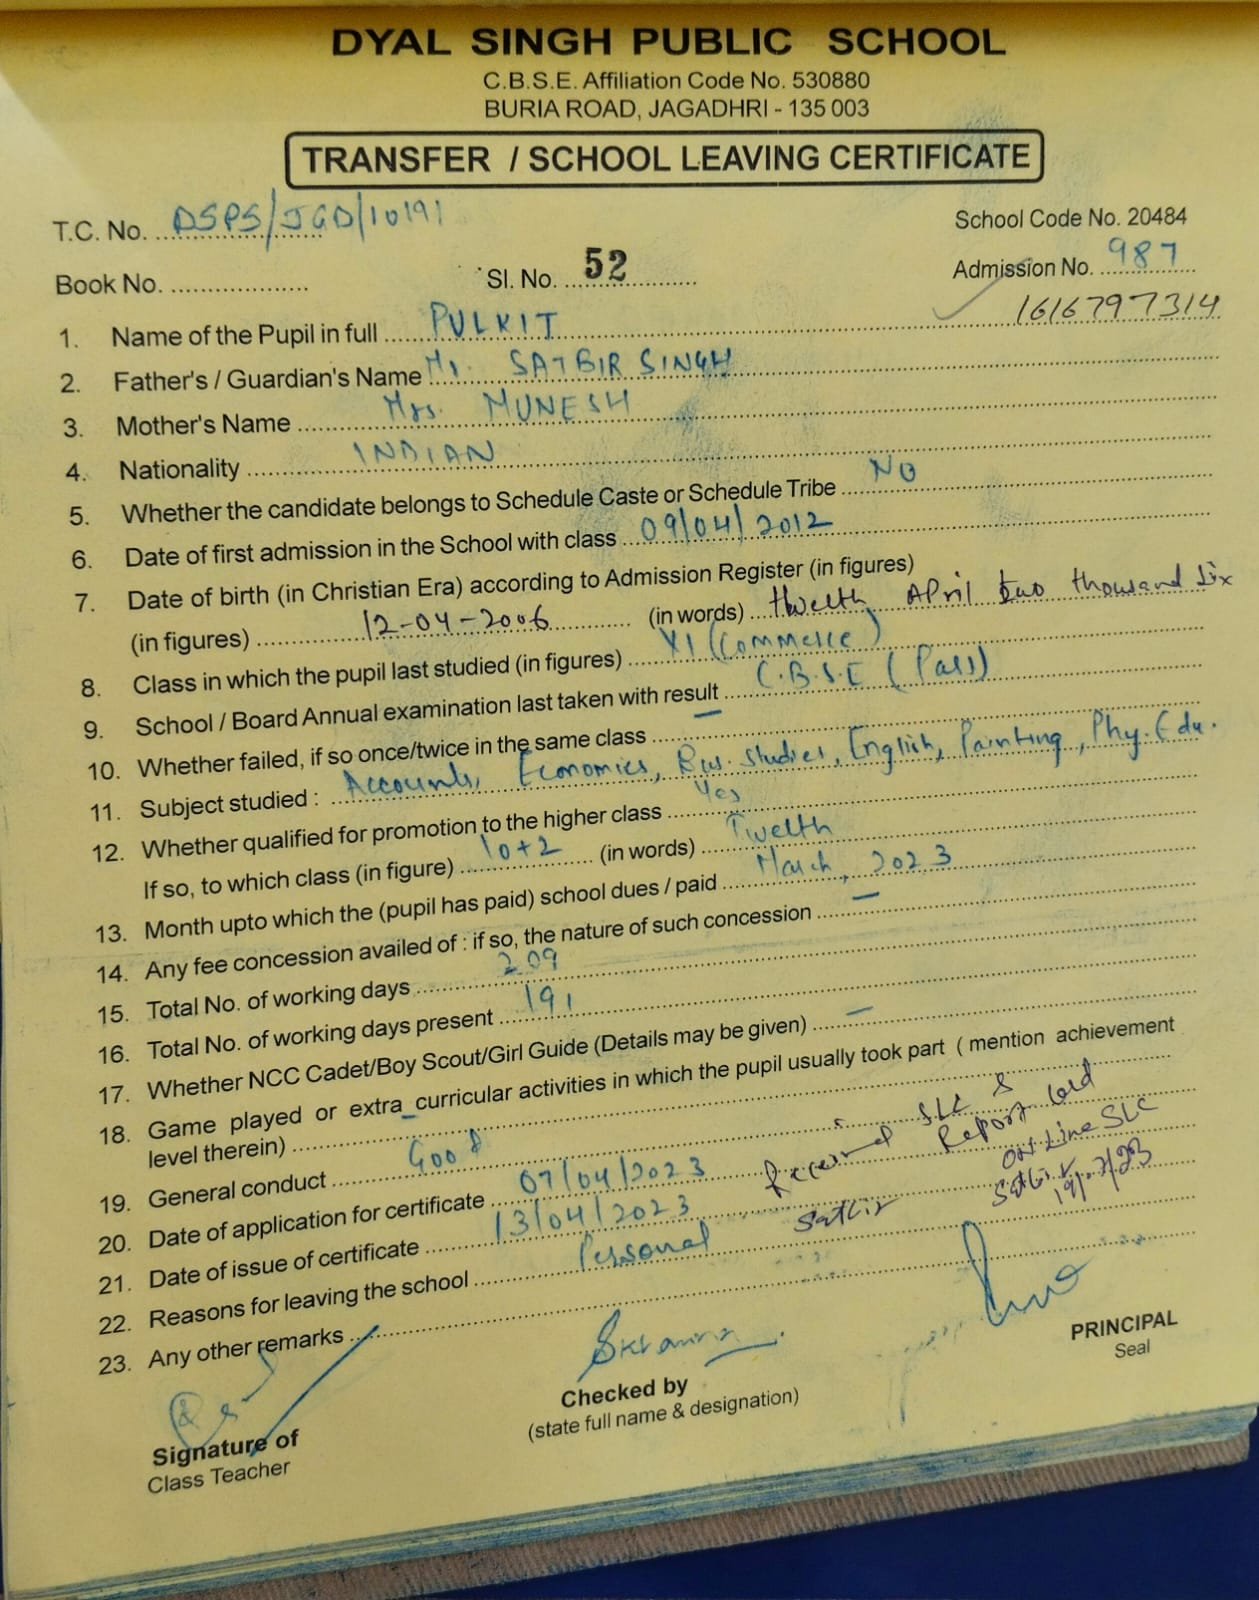 DYAL SINGH PUBLIC SCHOOL
C.B.S.E. Affiliation Code No. 530880
BURIA ROAD, JAGADHRI - 135 003
TRANSFER / SCHOOL LEAVING CERTIFICATE
T.C. No. DSPS/JGD/10191 School Code No. 20484
Book No. Sl. No. 52 Admission No. 987
1616797314
1. Name of the Pupil in full PULKIT
2. Father's / Guardian's Name Mr. SATBIR SINGH
3. Mother's Name Mrs. MUNESH
4. Nationality INDIAN
5. Whether the candidate belongs to Schedule Caste or Schedule Tribe NO
6. Date of first admission in the School with class 09/04/2012
7. Date of birth (in Christian Era) according to Admission Register (in figures)
(in figures) 12-04-2006 (in words) twelth April two thousand six
8. Class in which the pupil last studied (in figures) XI (Commerce)
9. School / Board Annual examination last taken with result C.B.S.E (Pass)
10. Whether failed, if so once/twice in the same class —
11. Subject studied : Accounts, Economics, Bus. Studies, English, Painting, Phy. Edu.
12. Whether qualified for promotion to the higher class Yes
If so, to which class (in figure) 10+2 (in words) Twelth
13. Month upto which the (pupil has paid) school dues / paid March, 2023
14. Any fee concession availed of : if so, the nature of such concession —
15. Total No. of working days 209
16. Total No. of working days present 191
17. Whether NCC Cadet/Boy Scout/Girl Guide (Details may be given) —
18. Game played or extra curricular activities in which the pupil usually took part ( mention achievement
level therein) —
19. General conduct Good
20. Date of application for certificate 07/04/2023
21. Date of issue of certificate 13/04/2023
22. Reasons for leaving the school Personal
23. Any other remarks
Received SLC &
Report Card
Satbir
ON Line SLC
Satbir
Signature of
Class Teacher
Checked by
(state full name & designation)
PRINCIPAL
Seal